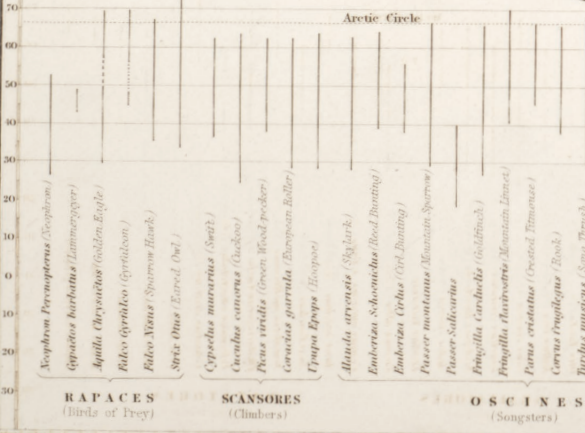 70
Arctic Circle
60
50
40
30
20
10
0
10
20
30
Neophron Percnopterus (Neophron)
Gypaëtos barbatus (Lammergeyer)
Aquila Chrysaëtos (Golden Eagle)
Falco Gyrfalco (Gyrfalcon)
Falco Nisus (Sparrow Hawk)
Strix Otus (Eared Owl)
Cypselus murarius (Swift)
Cuculus canorus (Cuckoo)
Picus viridis (Green Wood-pecker)
Coracias garrula (European Roller)
Upupa Epops (Hoopoe)
Alauda arvensis (Skylark)
Emberiza Schoeniclus (Reed Bunting)
Emberiza Cirlus (Cirl Bunting)
Passer montanus (Mountain Sparrow)
Passer Salicarius
Fringilla Carduelis (Goldfinch)
Fringilla flavirostris (Mountain Linnet)
Parus cristatus (Crested Titmouse)
Corvus frugilegus (Rook)
RAPACES
(Birds of Prey)
SCANSORES
(Climbers)
OSCINES
(Songsters)